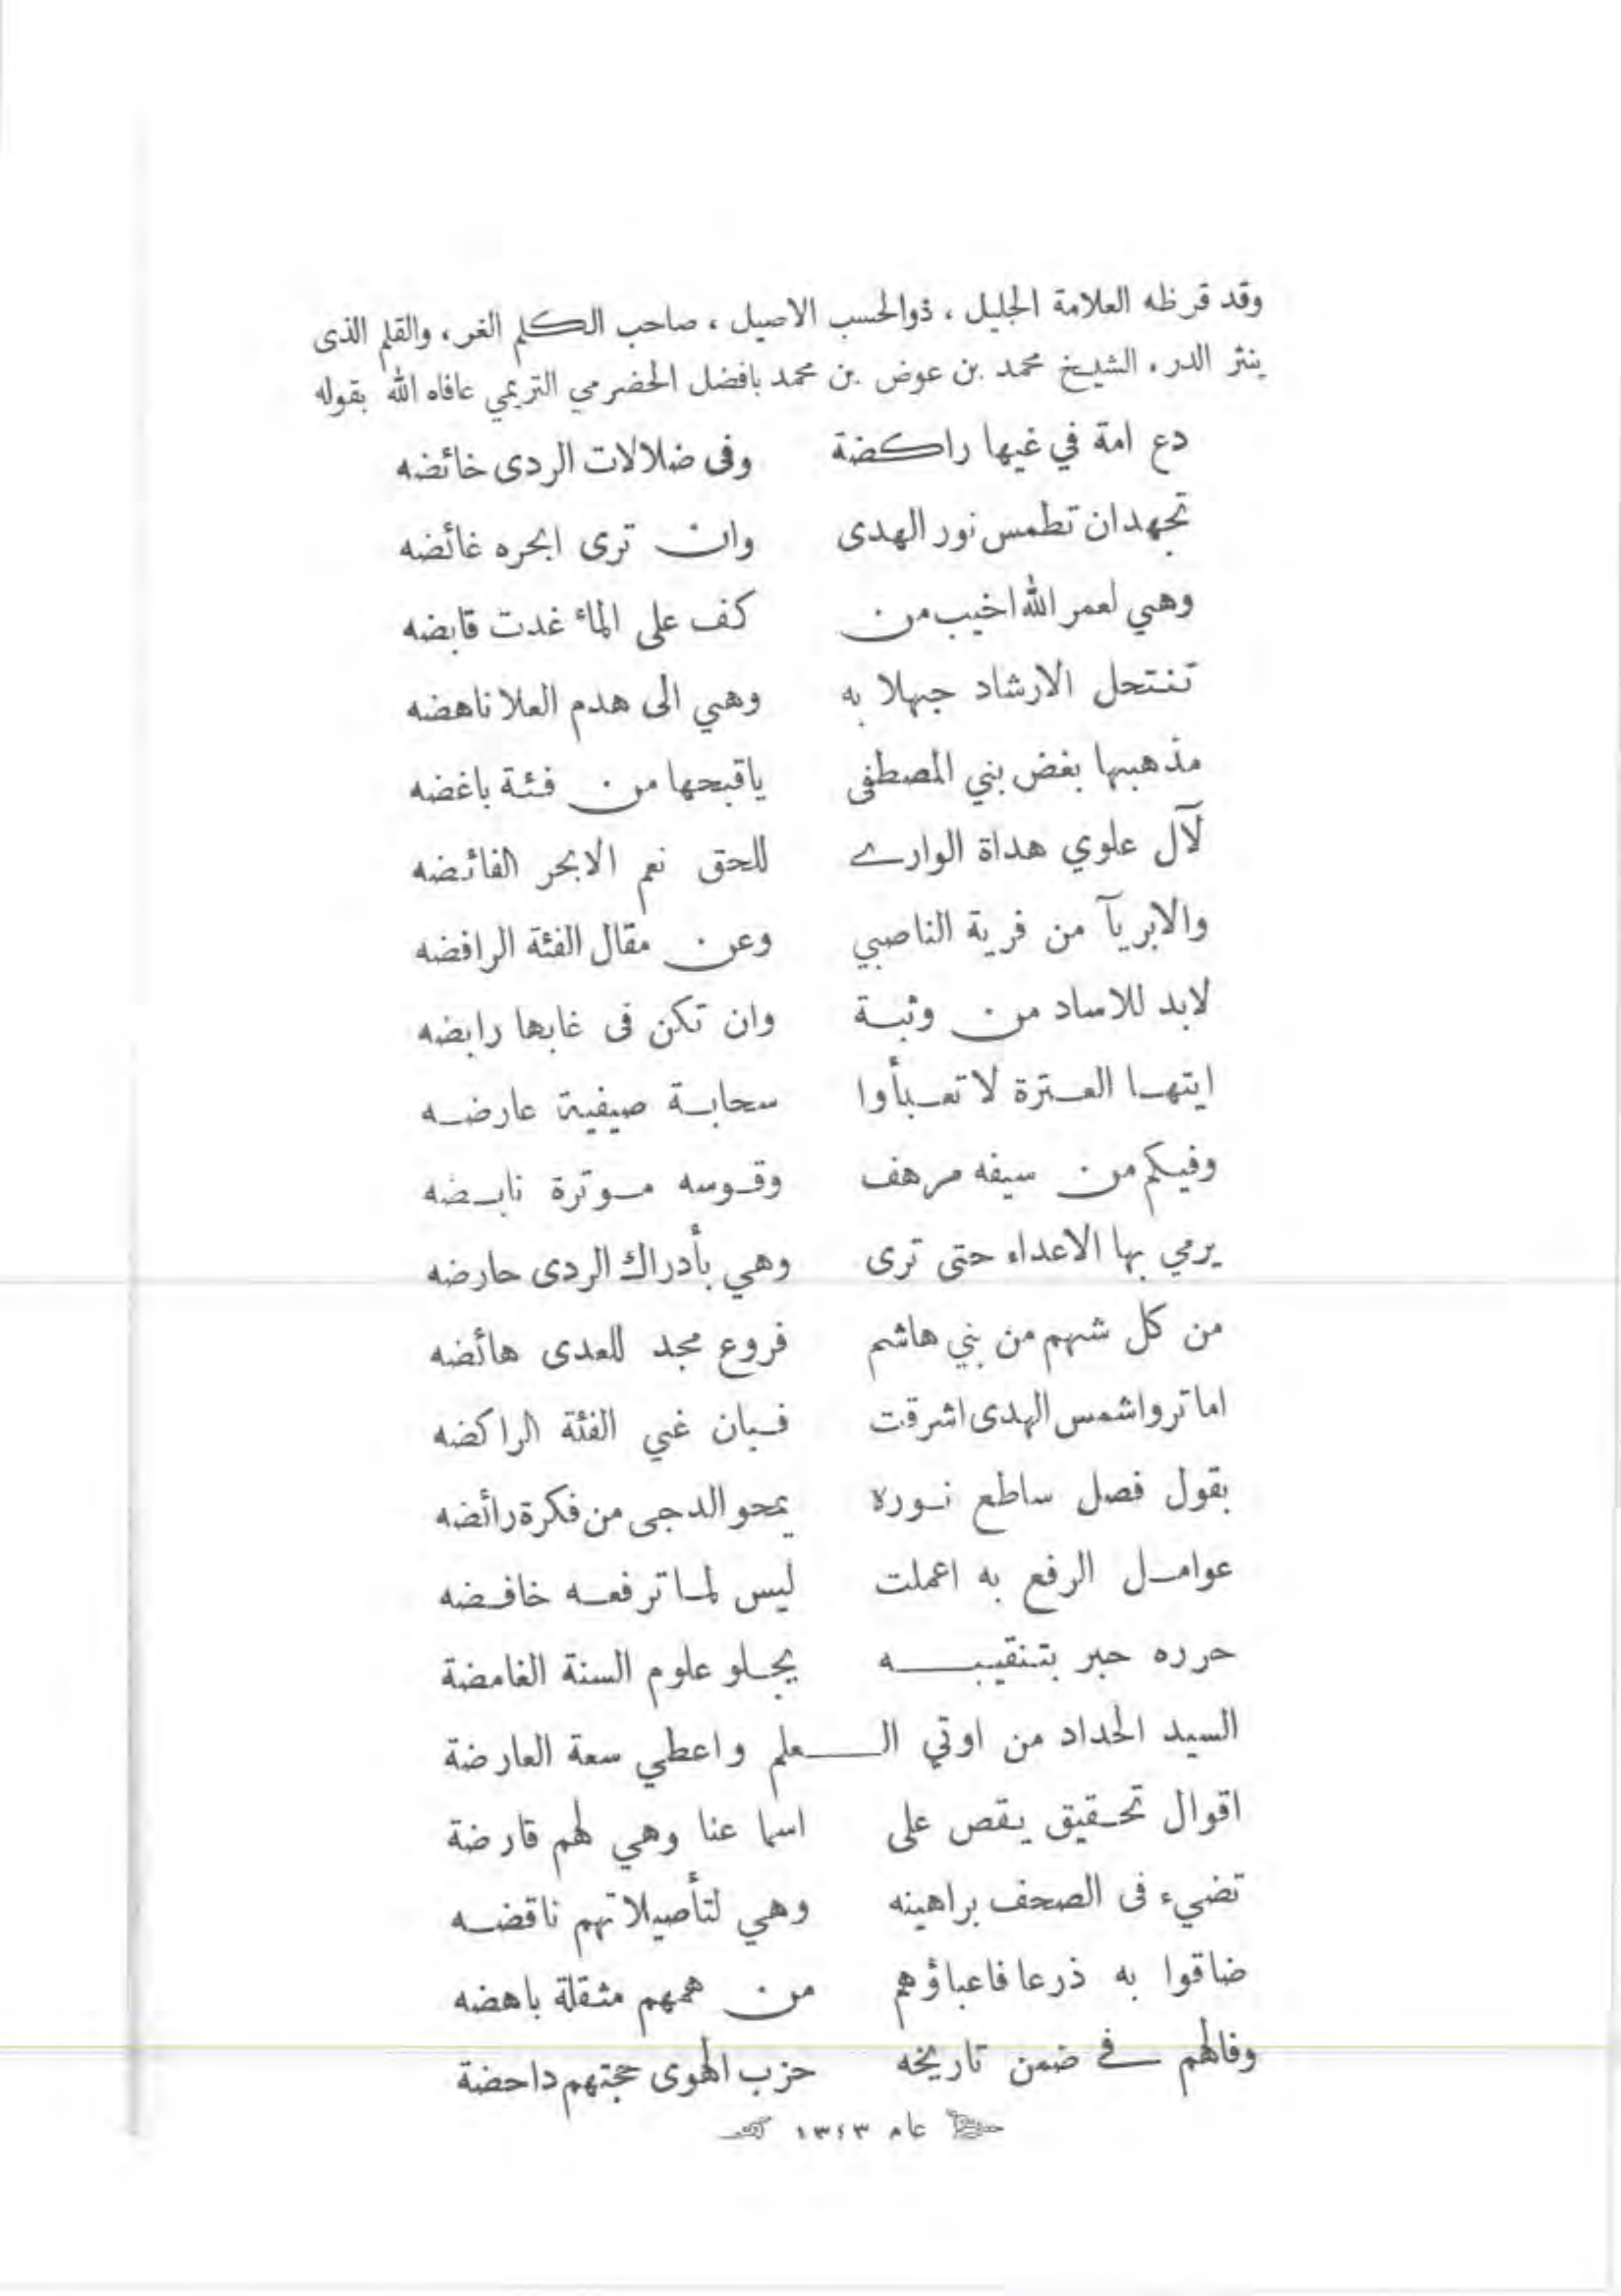 وقد قرظه العلامة الجليل ، ذوالحسب الاصيل ، صاحب الكلم الغر ، والقلم الذى
ينثر الدر ، الشيخ محمد بن عوض بن محمد بافضل الحضرمي التريمي عافاه الله بقوله
دع امة في غيها راكضة وفى ضلالات الردى خائضه
تجهد ان تطمس نور الهدى وان ترى ابحره غائضه
وهي لعمر الله اخيب من كف على الماء غدت قابضه
تنتحل الارشاد جهلا به وهي الى هدم العلا ناهضه
مذهبها بغض بني المصطفى ياقبحها من فئة باغضه
لآل علوي هداة الوارے للحق نعم الابحر الفائضه
والابريآ من فرية الناصبي وعن مقال الفئة الرافضه
لابد للاساد من وثبة وان تكن فى غابها رابضه
ايتها العترة لا تعبأوا سحابة صيفية عارضه
وفيكم من سيفه مرهف وقوسه موترة نابضه
يرمي بها الاعداء حتى ترى وهي بأدراك الردى حارضه
من كل شهم من بني هاشم فروع مجد للعدى هائضه
اما تروا شمس الهدى اشرقت فبان غي الفئة الراكضه
بقول فصل ساطع نوره يمحو الدجى من فكرة رائضه
عوامل الرفع به اعملت ليس لما ترفعه خافضه
حرره حبر بتنقيبه يجلو علوم السنة الغامضة
السيد الحداد من اوتي العلم واعطي سعة العارضة
اقوال تحقيق يقص على اسما عنا وهي لهم قارضة
تضيء فى الصحف براهينه وهي لتأصيلاتهم ناقضه
ضاقوا به ذرعا فاعباؤهم من همهم مثقلة باهضه
وفالهم في ضمن تاريخه حزب الهوى حجتهم داحضة
عام ١٣٤٣